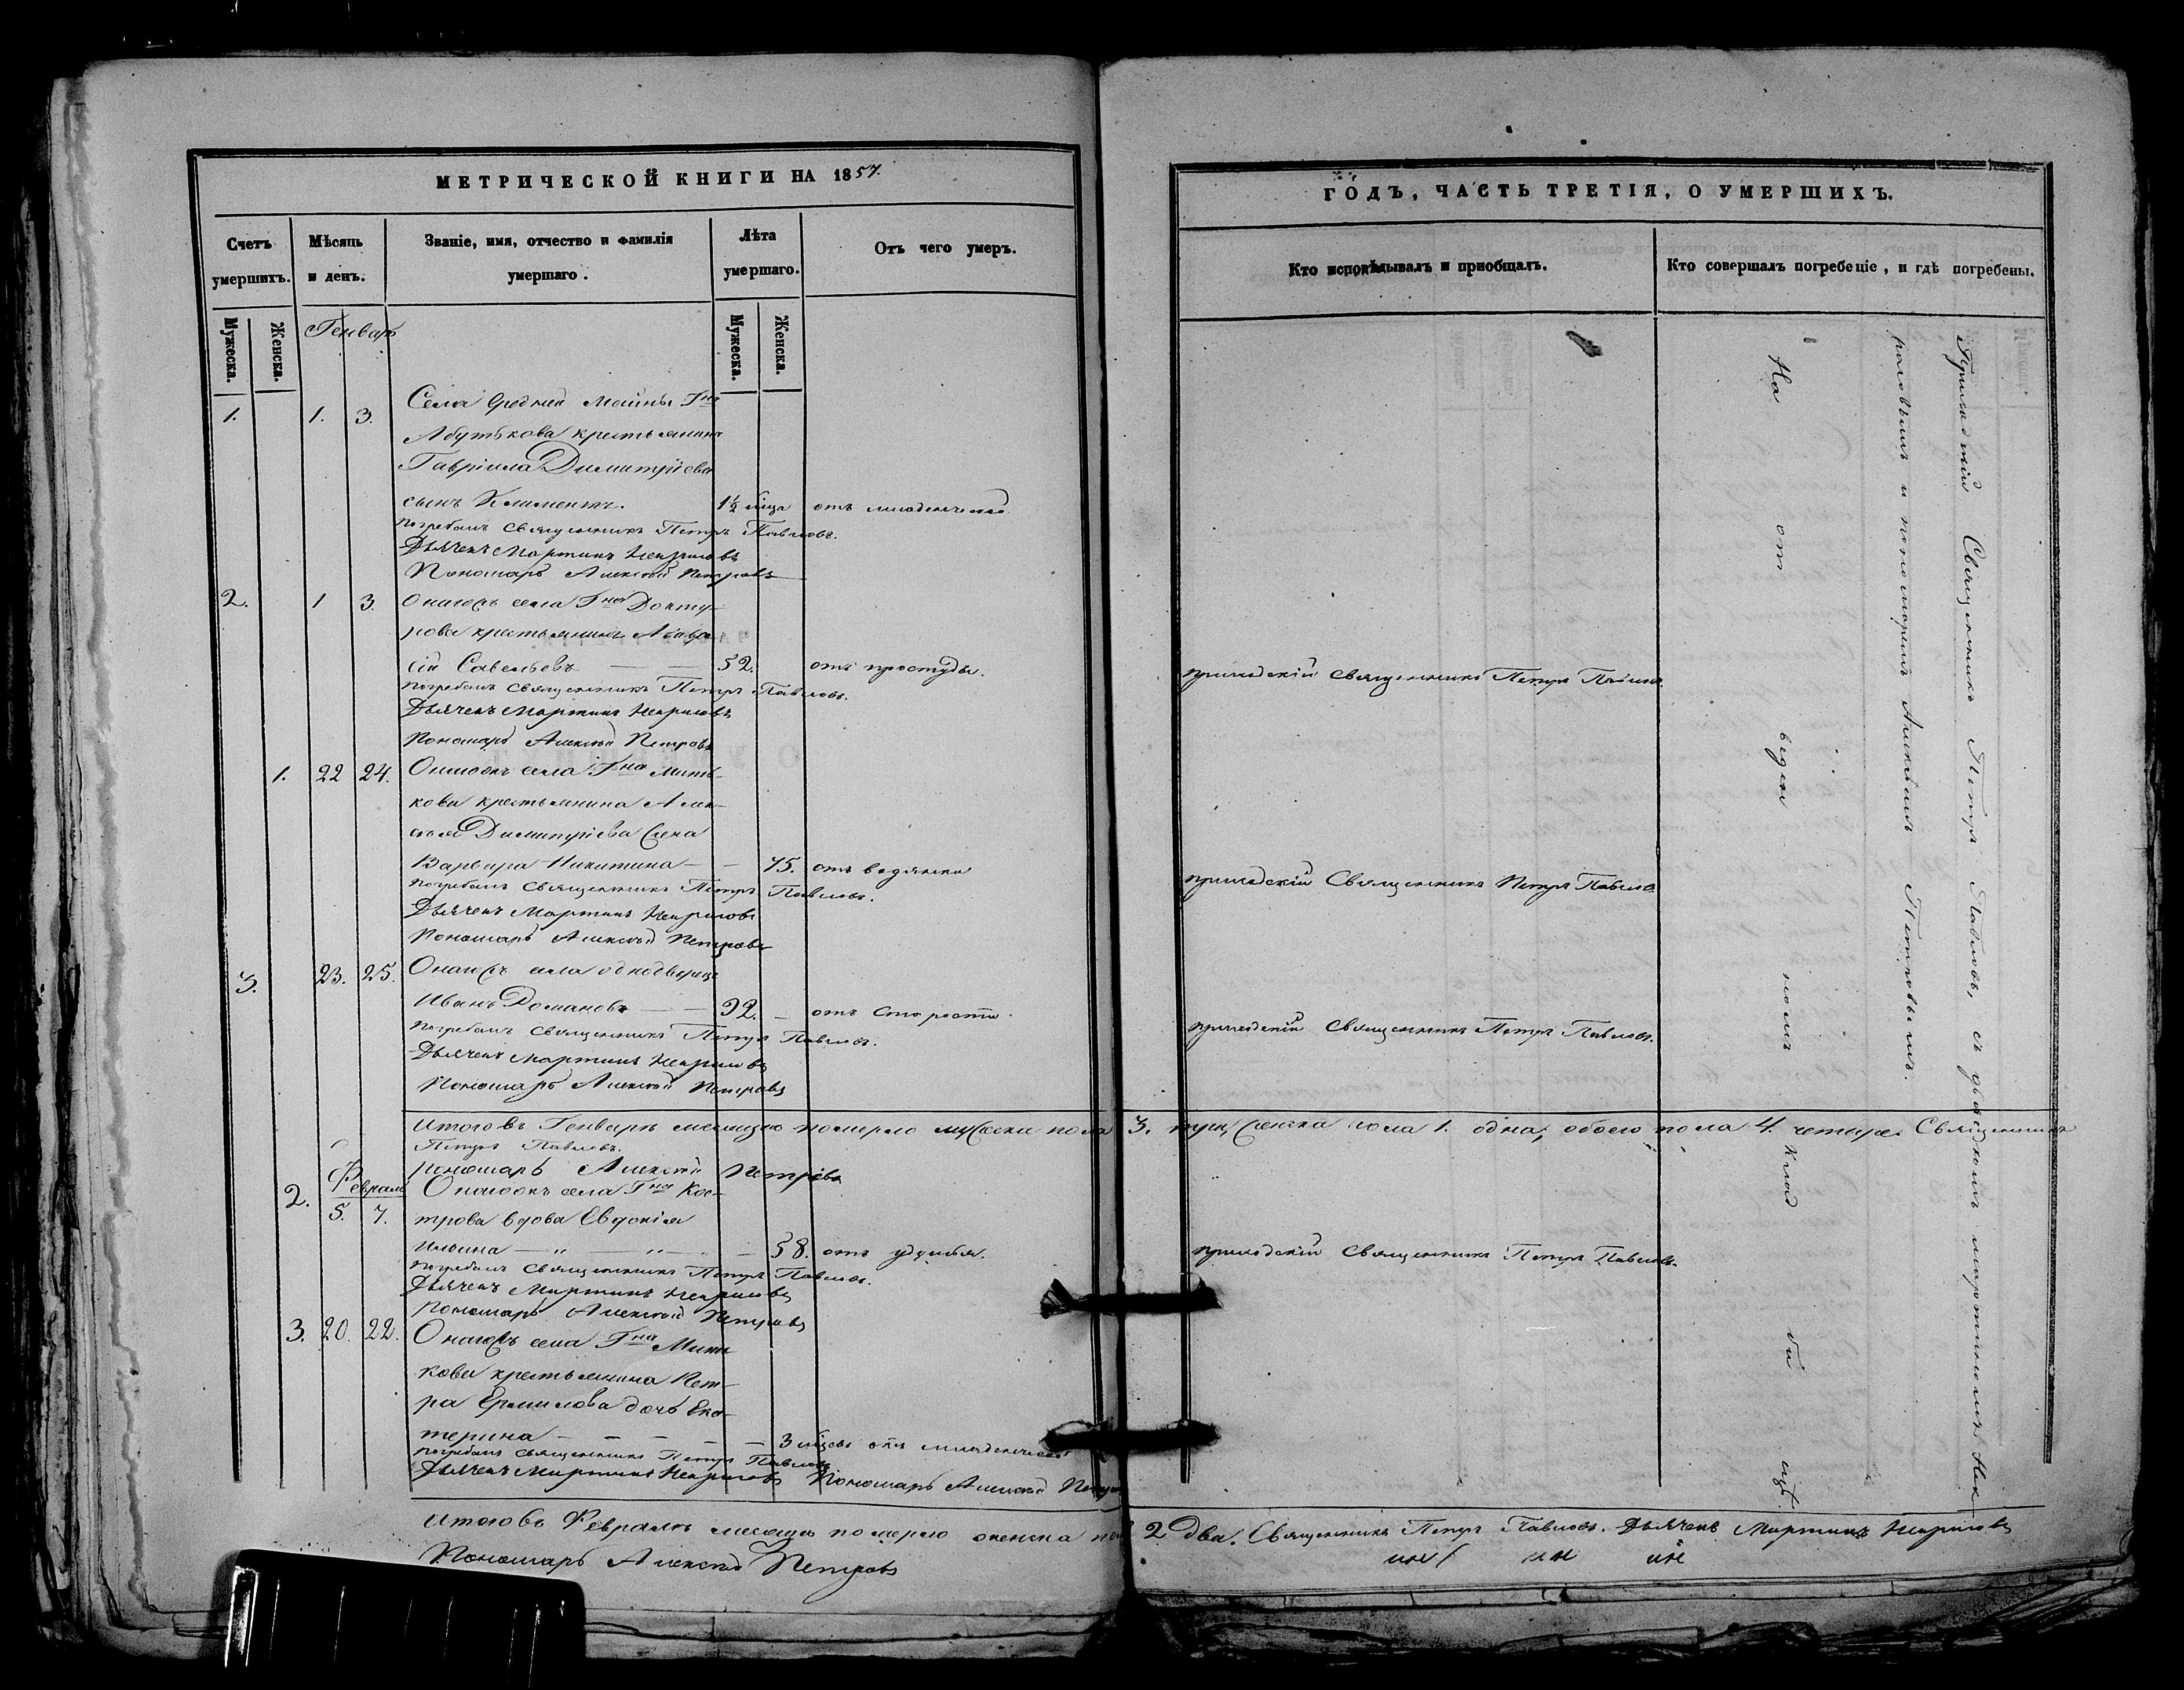 МЕТРИЧЕСКОЙ КНИГИ НА 1857.
Счетъ умершихъ.
Мѣсяцъ и день.
Званіе, имя, отчество и фамилія умершаго.
Лѣта умершаго.
Отъ чего умеръ.
Мужеска.
Женска.
Генварь
Мужеска.
Женска.
1. 1. 3. Села Средней Майны Гна
Абутькова крестьянина
Гавріила Димитріева
сынъ Климентъ. 1½ мца отъ младенческой
Погребалъ Священникъ Петръ Павловъ.
Дьячекъ Мартинъ Некрасовъ
Пономарь Алексѣй Петровъ
2. 1 3. Онагожъ села Гна Докту-
рова крестьянинъ Аѳана-
сій Савельевъ 52. отъ простуды.
Погребалъ Священникъ Петръ Павловъ.
Дьячекъ Мартинъ Некрасовъ
Пономарь Алексѣй Петровъ
1. 22 24. Онагожъ села Гна Мить-
кова крестьянина Алек-
сѣя Димитріева жена
Варвара Никитина 75. отъ водянки
Погребалъ Священникъ Петръ Павловъ.
Дьячекъ Мартинъ Некрасовъ
Пономарь Алексѣй Петровъ
3. 23. 25. Онагожъ села однодворецъ
Иванъ Романовъ 92. отъ старости.
Погребалъ Священникъ Петръ Павловъ.
Дьячекъ Мартинъ Некрасовъ
Пономарь Алексѣй Петровъ
Итого въ Генварѣ месяцѣ померло мужеска пола 3. три, женска пола 1. одна, обоего пола 4. четыре. Священникъ
Петръ Павловъ.
Пономарь Алексѣй Петровъ
Февраль
2. 5. 7. Онагожъ села Гна Кос-
трова вдова Евдокія
Ильина 58. отъ удушья.
Погребалъ Священникъ Петръ Павловъ.
Дьячекъ Мартинъ Некрасовъ
Пономарь Алексѣй Петровъ
3. 20. 22. Онагожъ села Гна Мить-
кова крестьянина Пет-
ра Ермилова дочь Ека-
терина 3 мцевъ отъ младенческой
Погребалъ Священникъ Петръ Павловъ
Дьячекъ Мартинъ Некрасовъ Пономарь Алексѣй Петровъ
Итого въ Февралѣ месяцѣ померло женска пола 2. два. Священникъ Петръ Павловъ. Дьячекъ Мартинъ Некрасовъ
Пономарь Алексѣй Петровъ
ГОДЪ, ЧАСТЬ ТРЕТІЯ, О УМЕРШИХЪ.
Кто исповѣдывалъ и приобщалъ.
Кто совершалъ погребеніе, и гдѣ погребены.
приходскій Священникъ Петръ Павловъ.
приходскій Священникъ Петръ Павловъ
приходскій Священникъ Петръ Павловъ.
приходскій Священникъ Петръ Павловъ.
Приходскій Священникъ Петръ Павловъ, съ дьячкомъ Мартиномъ Нек
расовымъ и пономаремъ Алексѣемъ Петровымъ.
На от веден номъ клад би щѣ.